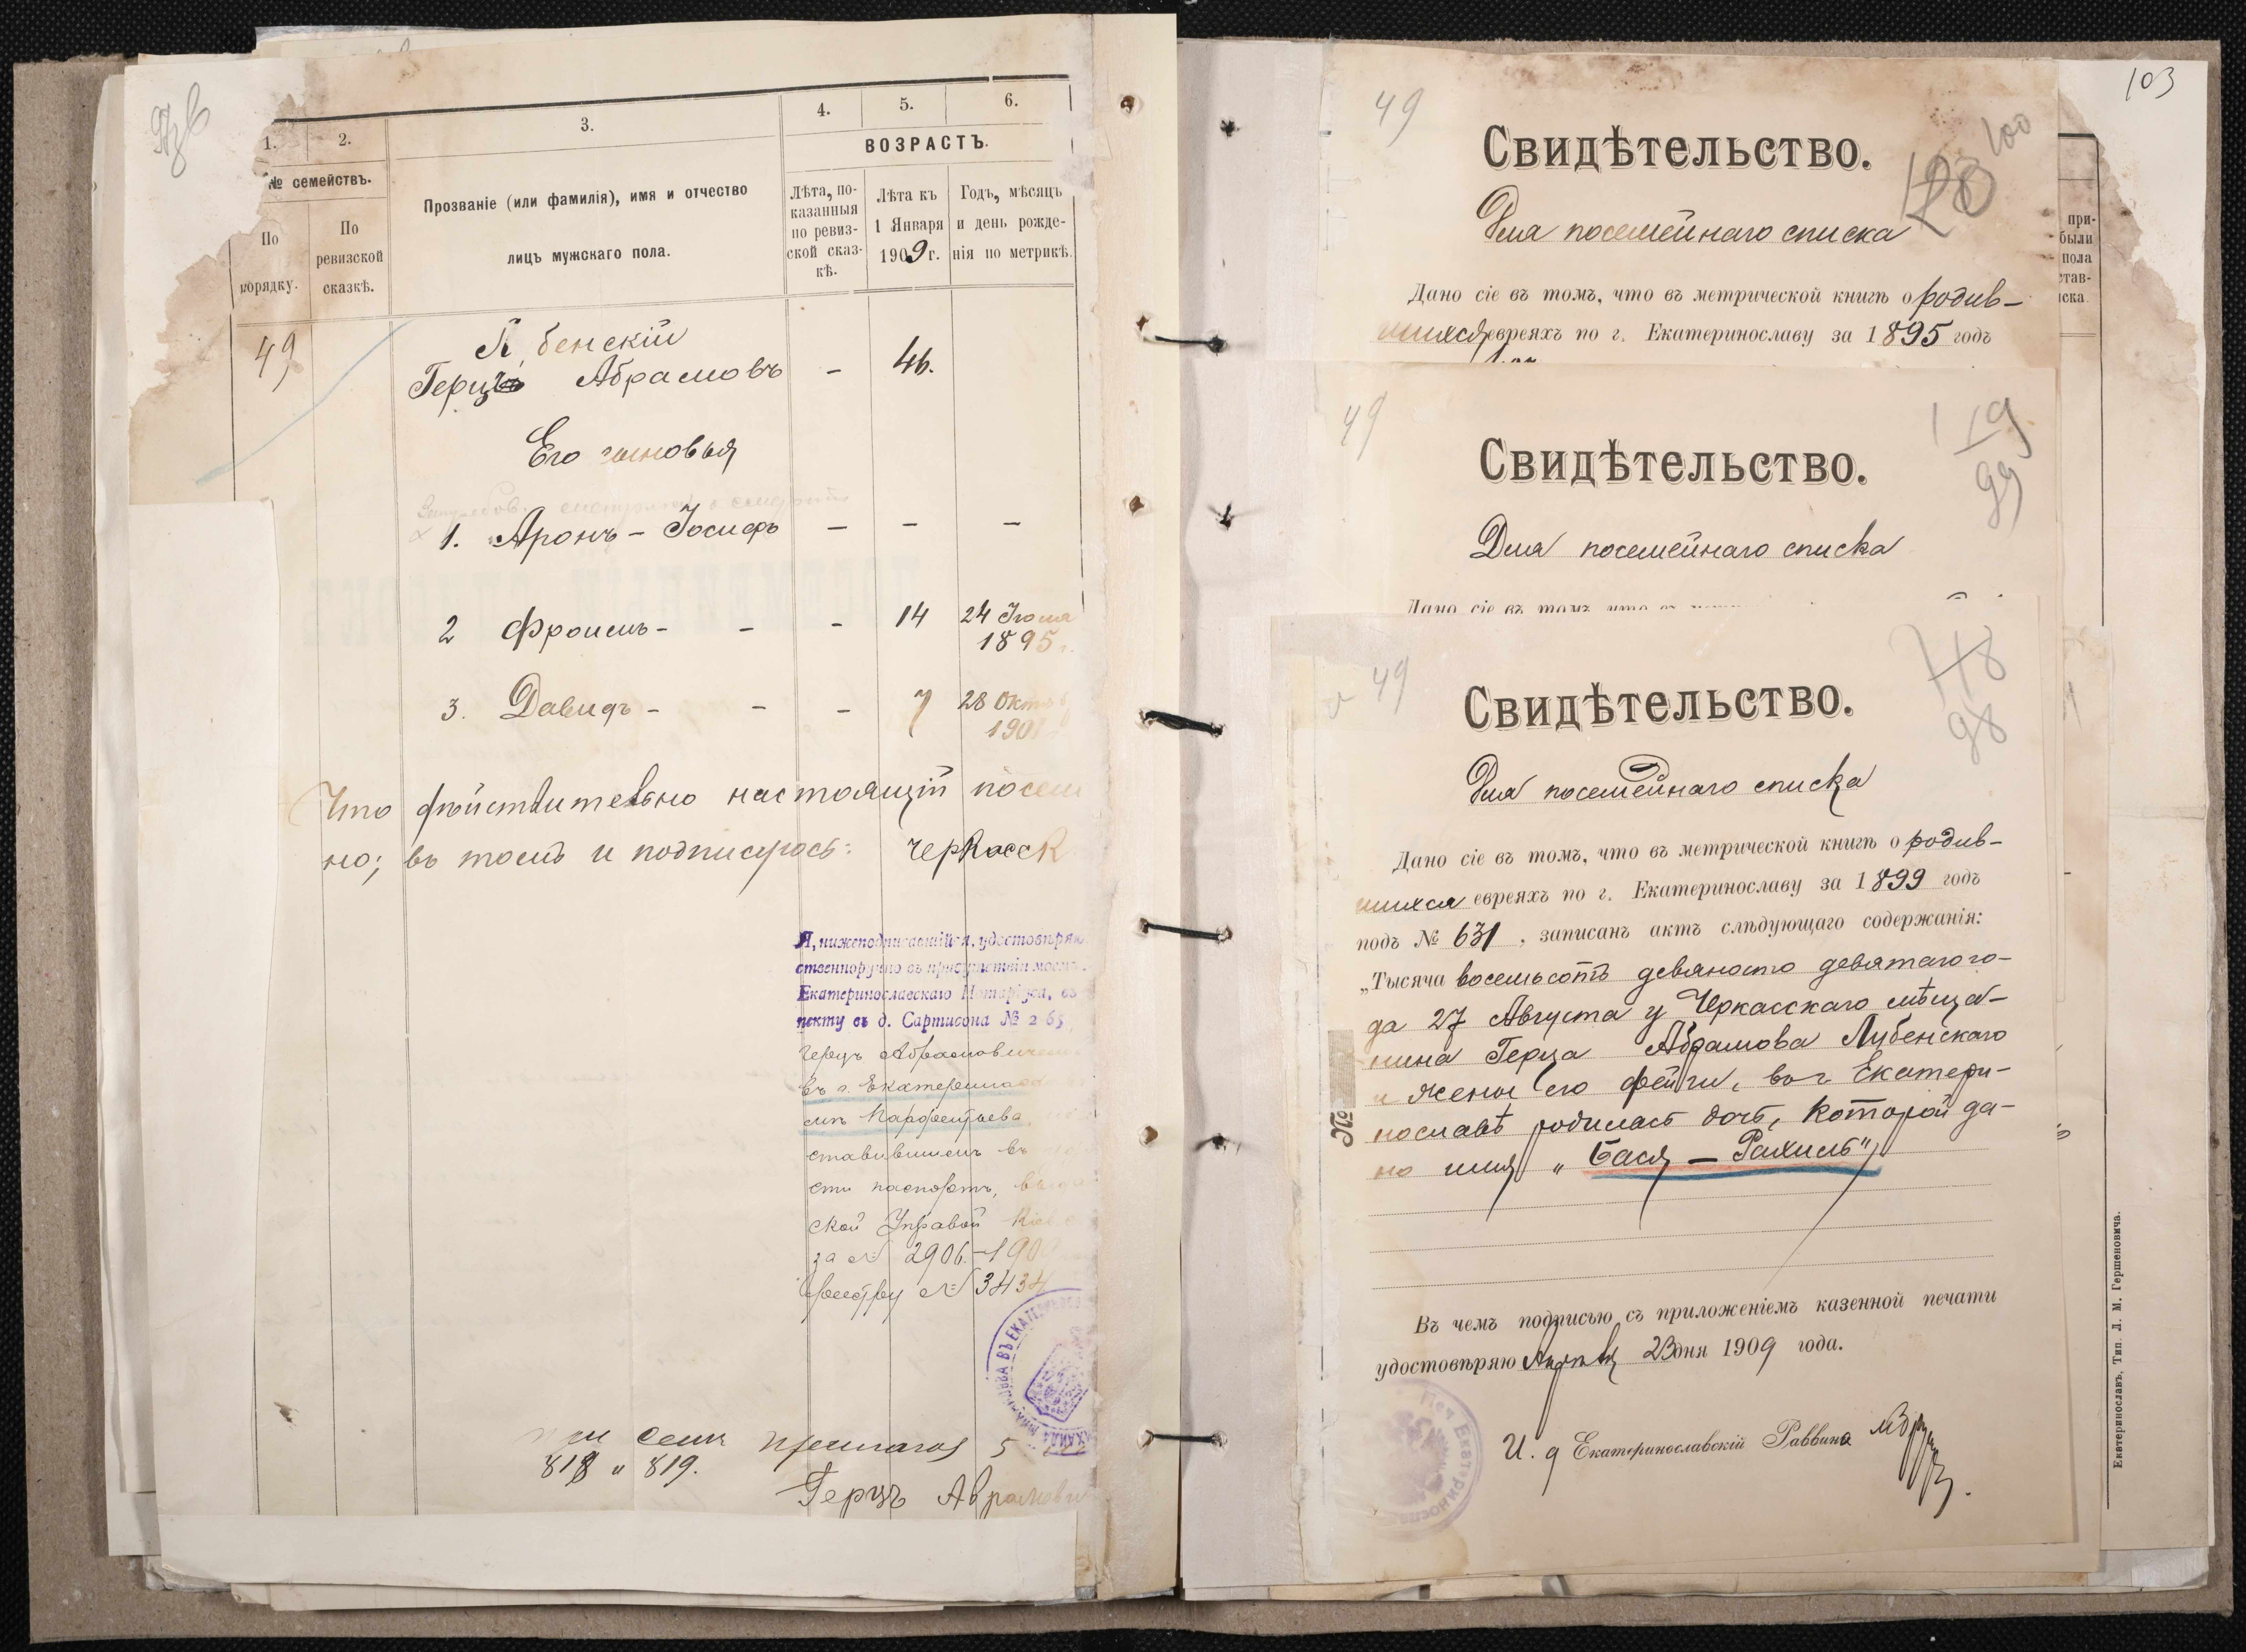 1.
2.
3.
4.
5.
6.
№ семействъ.
ВОЗРАСТЪ.
По
порядку.
По
ревизской
сказкѣ.
Прозваніе (или фамилія), имя и отчество
лицъ мужскаго пола.
Лѣта, по-
казанныя
по ревиз-
ской сказ-
кѣ.
Лѣта къ
1 Января
1909 г.
Годъ, мѣсяцъ
и день рожде-
нія по метрикѣ.
49
бенскій
Герцъ Абрамовъ - 46.
Его сыновья
1. Аронъ - Іосифъ - - -
2 Фроимъ - - - 14 24 Іюля
1895 г.
3. Давидъ - - - 7 28 Октяб
1901
Что дѣйствительно настоящій посем
но; въ томъ и подписуюсь: Черкасск
Я, нижеподписавшійся, удостовѣряю
ственноручно въ присутствіи моемъ
Екатеринославскаго Нотаріуса, въ
пекту въ д. Сартисона № 2 65
Герцъ Абрамовичемъ
въ г. Екатеринос
Парфентьева
ставившемъ въ
сти паспортъ, выд
ской Управой Кіев
за № 2906 - 190
Реестру № 3434
семъ прилагаю 5
818 и 819.
Герцъ Аврамови
49
100
Свидѣтельство.
Для посемейнаго списка
Дано сіе въ томъ, что въ метрической книгѣ о родив-
шихся евреяхъ по г. Екатеринославу за 1895 годъ
49
19
99
Свидѣтельство.
Для посемейнаго списка
Дано сіе въ томъ, что
49
98
Свидѣтельство.
Для посемейнаго списка
Дано сіе въ томъ, что въ метрической книгѣ о родив-
шихся евреяхъ по г. Екатеринославу за 1899 годъ
подъ № 631, записанъ актъ слѣдующаго содержанія:
„Тысяча восемьсотъ девяносто девятаго го-
да 27 Августа у Черкасскаго мѣща-
нина Герца Абрамова Лубенскаго
и жены его Фейги, въ г. Екатери-
нославѣ родилась дочь, которой да-
но имя „Бася - Рахиль"
№
Въ чемъ подписью съ приложеніемъ казенной печати
удостовѣряю Апрѣля 23 дня 1909 года.
И. д Екатеринославскій Раввинъ
103
при-
были
пола
став-
иска.
Екатеринославъ, Тип. Л. М. Гершеновича.